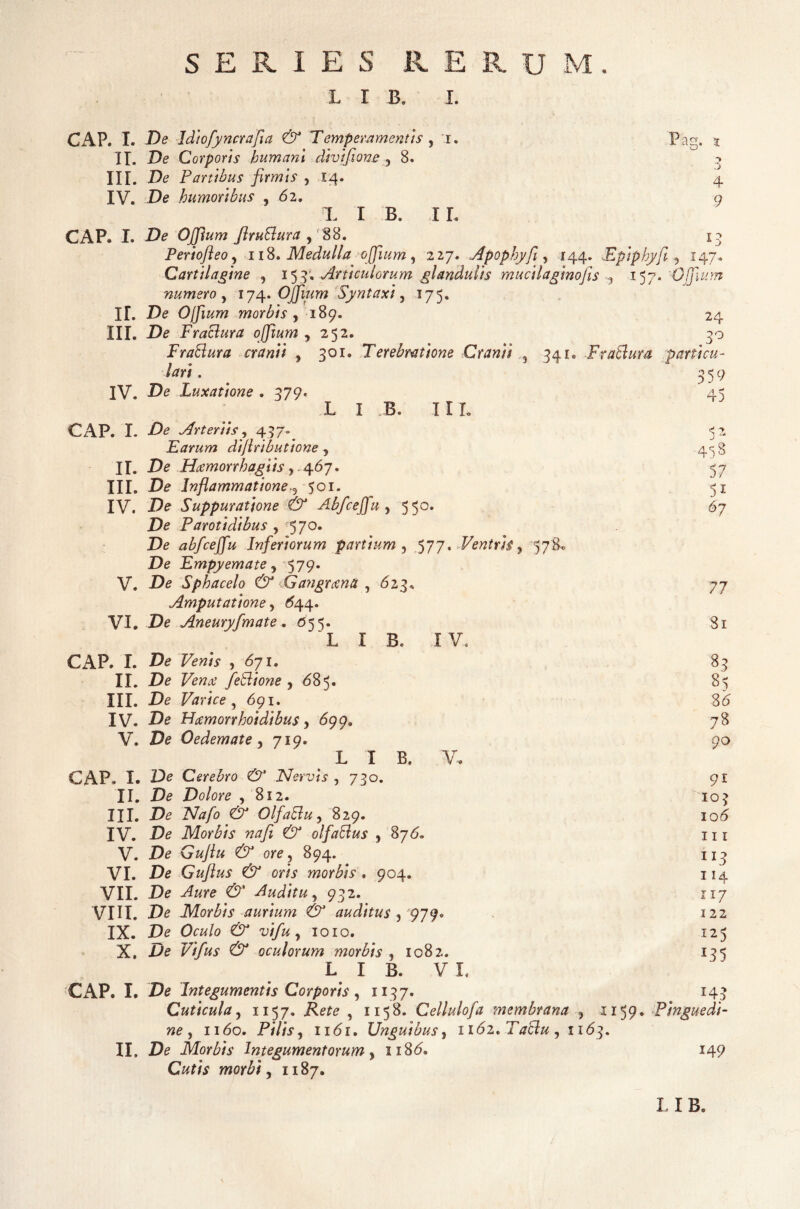 SERIES RERUM.
LIB. I.
CAP. I. De Idiosyncrasia & Temperamentis, 1. Pag. 1
II. De Corporis humani divisione, 8. 3
III. De Partibus firmis, 14. 4
IV. De humoribus, 62. 9
LIB. II.
CAP. I. De Ossium structura, 88. 13
Periosteo, 118. Medulla ossium, 227. Apophysi, 144. Epiphysi, 147.
Cartilagine, 153. Articulorum glandulis mucilaginosis, 157. Ossium
numero, 174. Ossium Syntaxi, 175.
II. De Ossium morbis, 189. 24
III. De Fractura ossium, 252. 30
Fractura cranii, 301. Terebratione Cranii, 341. Fractura particu-
lari. 359
IV. De Luxatione. 379. 45
LIB. III.
CAP. I. De Arteriis, 437. 52
Earum distributione, 458
II. De Hæmorrhagiis, 467. 57
III. De Inflammatione, 501. 51
IV. De Suppuratione & Abscessu, 550. 67
De Parotidibus, 570.
De abscessu Inferiorum partium, 577. Ventris, 578.
De Empyemate, 579.
V. De Sphacelo & Gangræna, 623. 77
Amputatione, 644.
VI. De Aneurysmate. 655. 81
LIB. IV.
CAP. I. De Venis, 671. 83
II. De Venæ sectione, 685. 85
III. De Varice, 691. 86
IV. De Hæmorrhoidibus, 699. 78
V. De Oedemate, 719. 90
LIB. V.
CAP. I. De Cerebro & Nervis, 730. 91
II. De Dolore, 812. 103
III. De Naso & Olfactu, 829. 106
IV. De Morbis nasi & olfactus, 876. 111
V. De Gustu & ore, 894. 113
VI. De Gustus & oris morbis. 904. 114
VII. De Aure & Auditu, 932. 117
VIII. De Morbis aurium & auditus, 979. 122
IX. De Oculo & visu, 1010. 125
X. De Visus & oculorum morbis, 1082. 135
LIB. VI.
CAP. I. De Integumentis Corporis, 1137. 143
Cuticula, 1157. Rete, 1158. Cellulosa membrana, 1159. Pinguedi-
ne, 1160. Pilis, 1161. Unguibus, 1162. Tactu, 1163.
II. De Morbis Integumentorum, 1186. 149
Cutis morbi, 1187.
LIB.